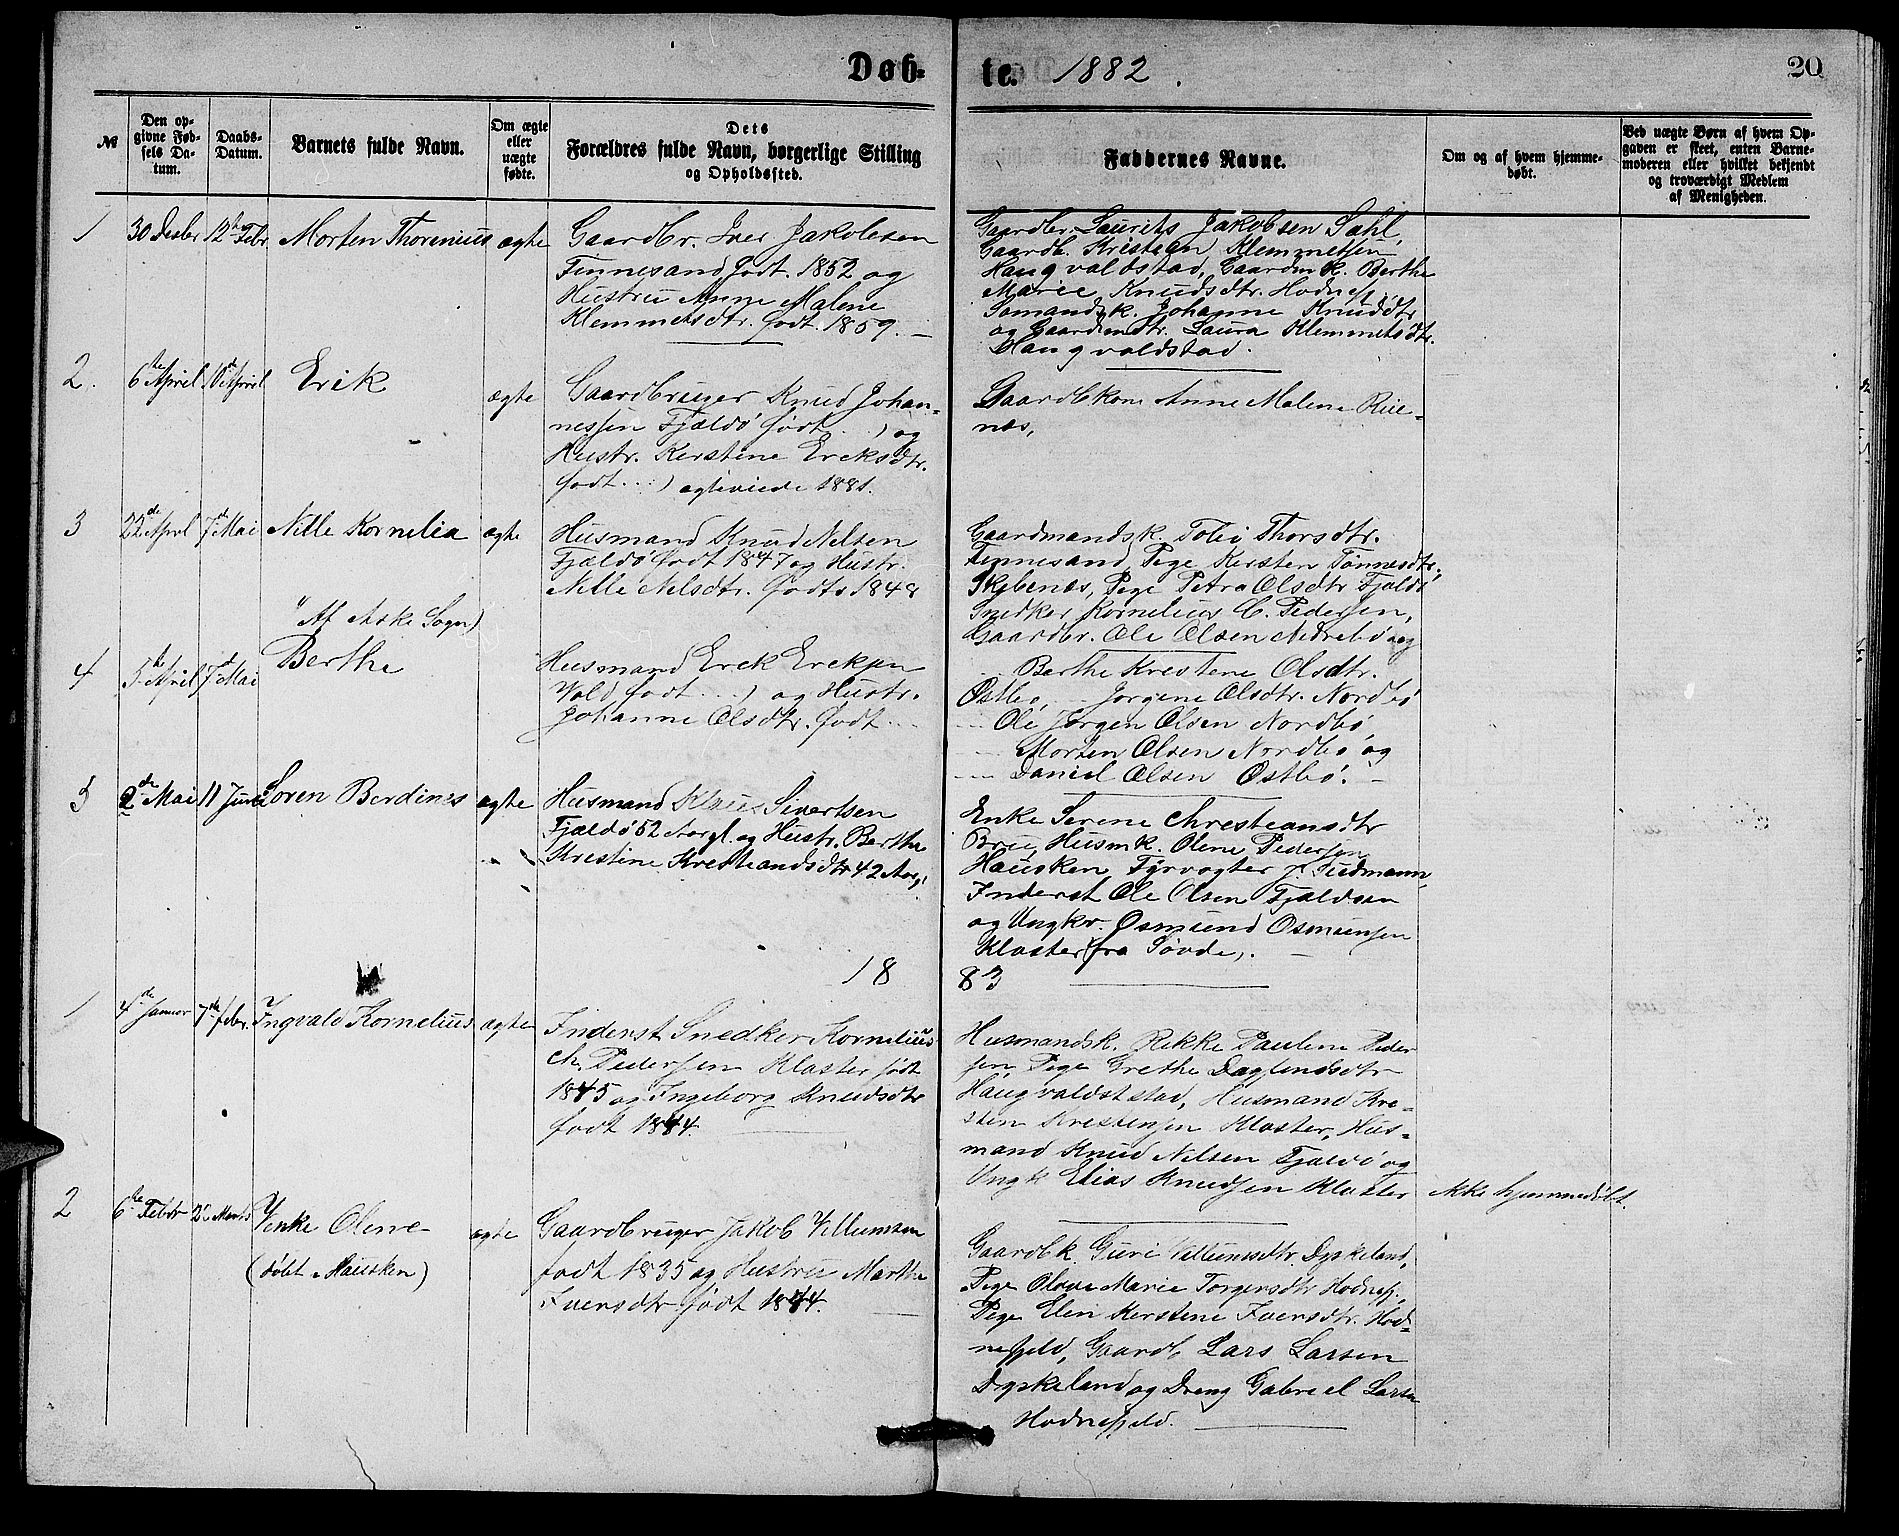 Døb-
te. 1882.
20
№
Den op-
givne Fød-
sels Da-
tum.
Daabs-
Datum.
Barnets fulde Navn.
Om ægte
eller
uægte
fødte.
Dets
Forældres fulde Navn, borgerlige Stilling
og Opholdssted.
Faddernes Navne.
Om og af hvem hjemme-
døbt.
Ved uægte Børn af hvem Op-
gaven er skeet, enten Barne-
moderen eller hvilket bekjendt
og troværdigt Medlem
af Menigheden.
1
30 Desbr
12te Febr
Morten Thorenius
ægte
Gaardbr. Iver Jakobsen
Finnesand født. 1852 og
Hustru Anne Malene
Klemmetsdtr. født. 1859.
Gaardbr. Laurits Jakobsen Sahl,
Gaardb. Kristian Klemmetsen
Haugvaldstad, Gaardm.k. Berthe
Marie Knudsdtr. Hodnef.
Johanne Knudsdtr
og Gaardmdtr. Laura Klemmetsdtr.
Haugvaldstad.
2.
6te April
10de April
Erik
ægte
Gaardbruger Knud Johan-
nessen Fjældø født. . .) og
Hustr. Kerstine Ereksdtr.
født . . .) ægteviede 1881.
Gaardbkone Anne Malene
næs,
3
22de April
7de Mai
Nille Kornelia
ægte
Husmand Knud Nelsen
Fjældø født 1847 og Hustr.
Nille Nelsdtr. født 1848
Gaardmandsk. Thorsdtr.
Finnesand, Pige Kersten Tønnesdtr.
Pige Petra Olsdtr Fjældø
Snedker Kornelius C. Pedersen,
Gaardbr. Ole Olsen Nedrebø og
"Af Aske Sogn)
4
5te April
7d Mai
Berthe
Husmand Erek Ereksen
Vold født . . .) og Hustr.
Johanne Olsdtr. født . . .
Berthe Krestene Olsdtr.
Østbø, Jorgene Olsdtr. Nordbø
Ole Jørgen Olsen Nordbø
Morten Olsen Nordbø og
Daniel Olsen Østbø.
5
2de Mai
11 Juni
Soren Berdines
ægte
Husmand Klaus Sivertsen
Fjældø 52 Aargl. og Hustr. Berthe
Krestine Krestiandsdtr 42 Aar,
Enke Serene Chresteansdtr
Bru, Husmk. Olene Pedersen
Hausken, Fyrvogter J. Tudmann,
Inderst Ole Olsen Fjældøen
og Ungkr. Osmund Osmunsen
Klaster (fra Søvde).
18
83
1
4de Januar
7de febr.
Ingvald Kornelius
ægte
Inderst Snedker Kornelius
Ch. Pedersen Klaster født
1845 og Ingeborg Knudsdtr
født 1844.
Husmandsk. Rikke Pauline Peder
sen, Pige Grethe Daglendsdtr
Haugvaldststad, Husmand Kre-
sten Krestensen Klaster, Hus-
mand Knud Nelsen Fjældø og
Ungk Elias Knudsen Klaster
Ikke hjemmedøbt.
2
6te Febr
Marts
Venke Olene
(døbt i Hausken)
ægte
Gaardbruger Jakob Villumsen
født 1835 og Hustru Marthe
Iversdtr født 1844.
Gaardbk. Guri Villumsdtr. Dyskeland,
Pige Olava Marie Torgersdtr Hodnefj.
Pige Elen Kerstene Iversdtr. Hod-
nefjeld, Gaardb. Lars Larsen
Dyskeland og Dreng Gabriel Larsen
Hodnefjeld.